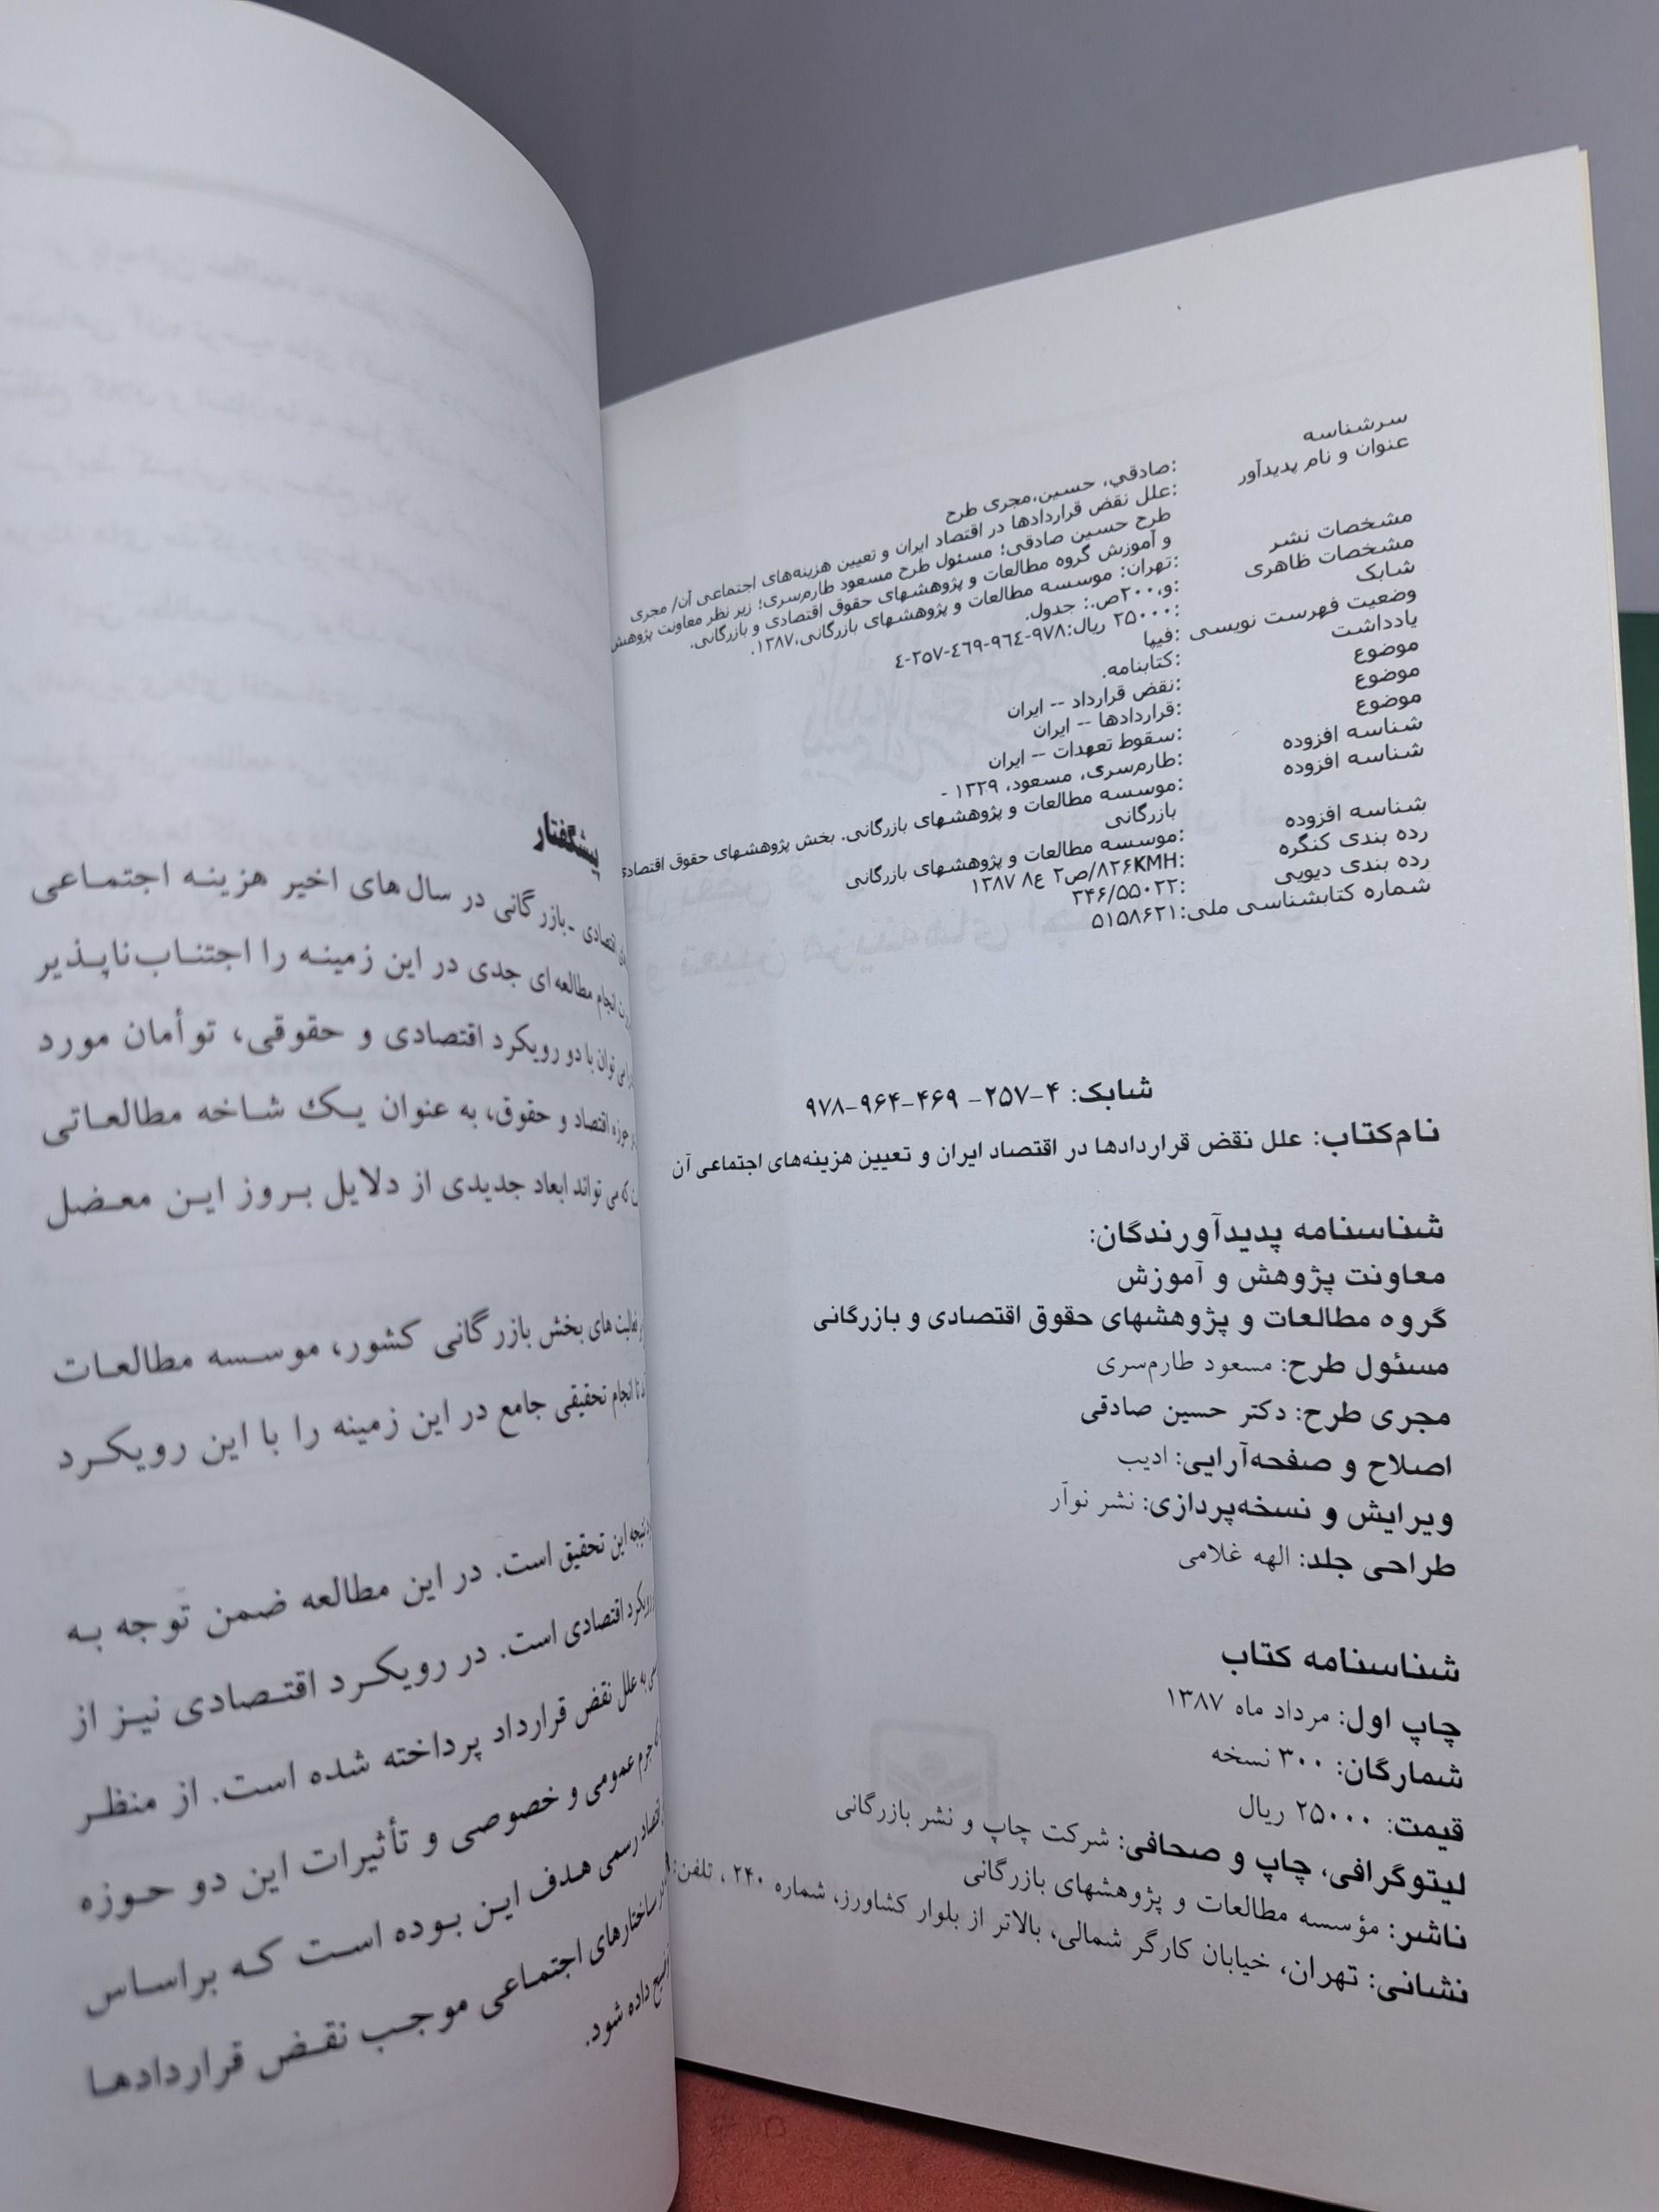 سرشناسه :صادقي، حسین،مجری طرح
عنوان و نام پدیدآور :علل نقض قراردادها در اقتصاد ایران و تعیین هزینه‌های اجتماعی آن/ مجری
طرح حسین صادقی؛ مسئول طرح مسعود طارم‌سری؛ زیر نظر معاونت پژوهش
و آموزش گروه مطالعات و پژوهشهای حقوق اقتصادی و بازرگانی.
مشخصات نشر :تهران: موسسه مطالعات و پژوهشهای بازرگانی،۱۳۸۷.
مشخصات ظاهری :و،۲۰۰ص.: جدول.
شابک :۲۵۰۰۰ ریال:۹۷۸-۹٦٤-٤٦۹-۲۵۷-٤
وضعیت فهرست نویسی :فیپا
یادداشت :کتابنامه.
موضوع :نقض قرارداد -- ایران
موضوع :قراردادها -- ایران
موضوع :سقوط تعهدات -- ایران
شناسه افزوده :طارم‌سری، مسعود، ۱۳۲۹ -
شناسه افزوده :موسسه مطالعات و پژوهشهای بازرگانی. بخش پژوهشهای حقوق اقتصادی
بازرگانی
شناسه افزوده :موسسه مطالعات و پژوهشهای بازرگانی
رده بندی کنگره :KMH۸۲۶/ص۲ ع۸ ۱۳۸۷
رده بندی دیویی :۳۴۶/۵۵۰۲۲
شماره کتابشناسی ملی:۵۱۵۸۶۲۱
شابک: ۴-۲۵۷- ۴۶۹-۹۶۴-۹۷۸
نام‌کتاب: علل نقض قراردادها در اقتصاد ایران و تعیین هزینه‌های اجتماعی آن
شناسنامه پدیدآورندگان:
معاونت پژوهش و آموزش
گروه مطالعات و پژوهشهای حقوق اقتصادی و بازرگانی
مسئول طرح: مسعود طارم‌سری
مجری طرح: دکتر حسین صادقی
اصلاح و صفحه‌آرایی: ادیب
ویرایش و نسخه‌پردازی: نشر نوآر
طراحی جلد: الهه غلامی
شناسنامه کتاب
چاپ اول: مرداد ماه ۱۳۸۷
شمارگان: ۳۰۰ نسخه
قیمت: ۲۵۰۰۰ ریال
لیتوگرافی، چاپ و صحافی: شرکت چاپ و نشر بازرگانی
ناشر: مؤسسه مطالعات و پژوهشهای بازرگانی
نشانی: تهران، خیابان کارگر شمالی، بالاتر از بلوار کشاورز، شماره ۲۴۰ ، تلفن:
پیشگفتار
اقتصادی -بازرگانی در سال‌های اخیر هزینه اجتماعی
انجام مطالعه‌ای جدی در این زمینه را اجتناب‌ناپذیر
توان با دو رویکرد اقتصادی و حقوقی، توأمان مورد
حوزه اقتصاد و حقوق، به عنوان یک شاخه مطالعاتی
که می تواند ابعاد جدیدی از دلایل بروز این معضل
فعالیت های بخش بازرگانی کشور، موسسه مطالعات
تا انجام تحقیقی جامع در این زمینه را با این رویکرد
نتیجه این تحقیق است. در این مطالعه ضمن توجه به
رویکرد اقتصادی است. در رویکرد اقتصادی نیز از
به علل نقض قرارداد پرداخته شده است. از منظر
جرم عمومی و خصوصی و تأثیرات این دو حوزه
اقتصاد رسمی هدف این بوده است که براساس
ساختارهای اجتماعی موجب نقض قراردادها
داده شود.